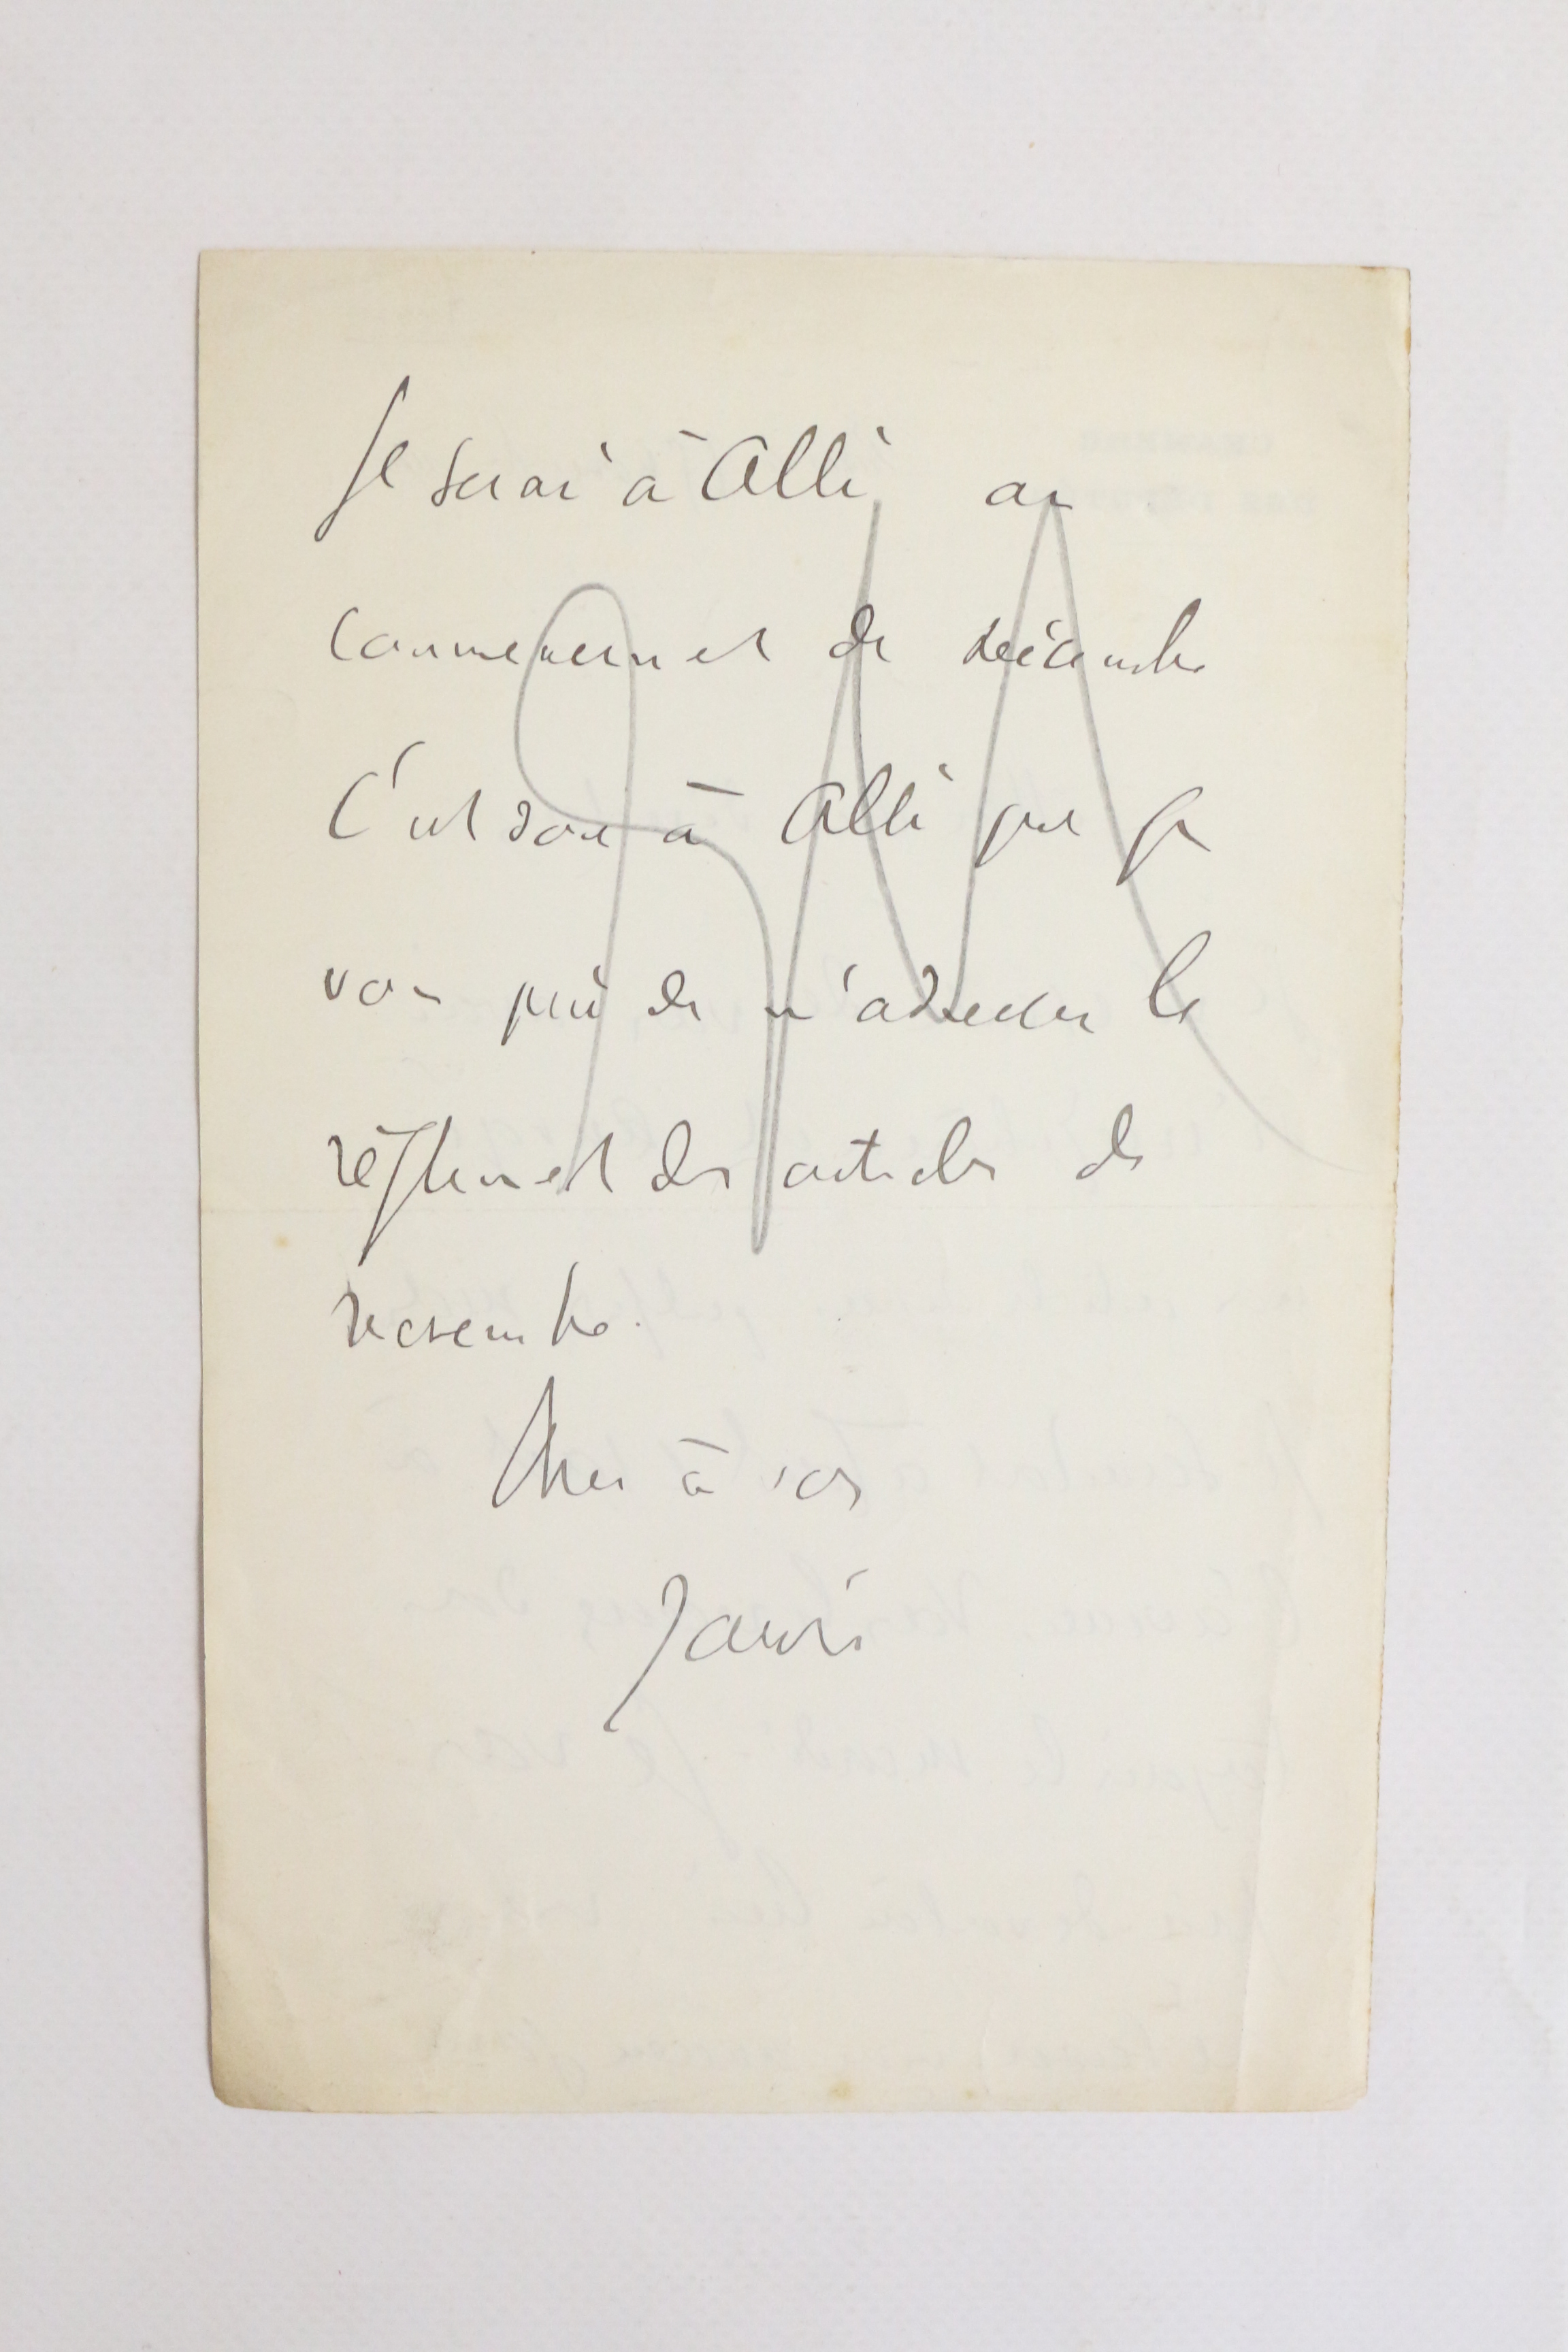 Je serai à Albi au
commencement de décembre
C'est donc à Albi que je
vous prie de m'adresser le
règlement des articles de
novembre.
à vous